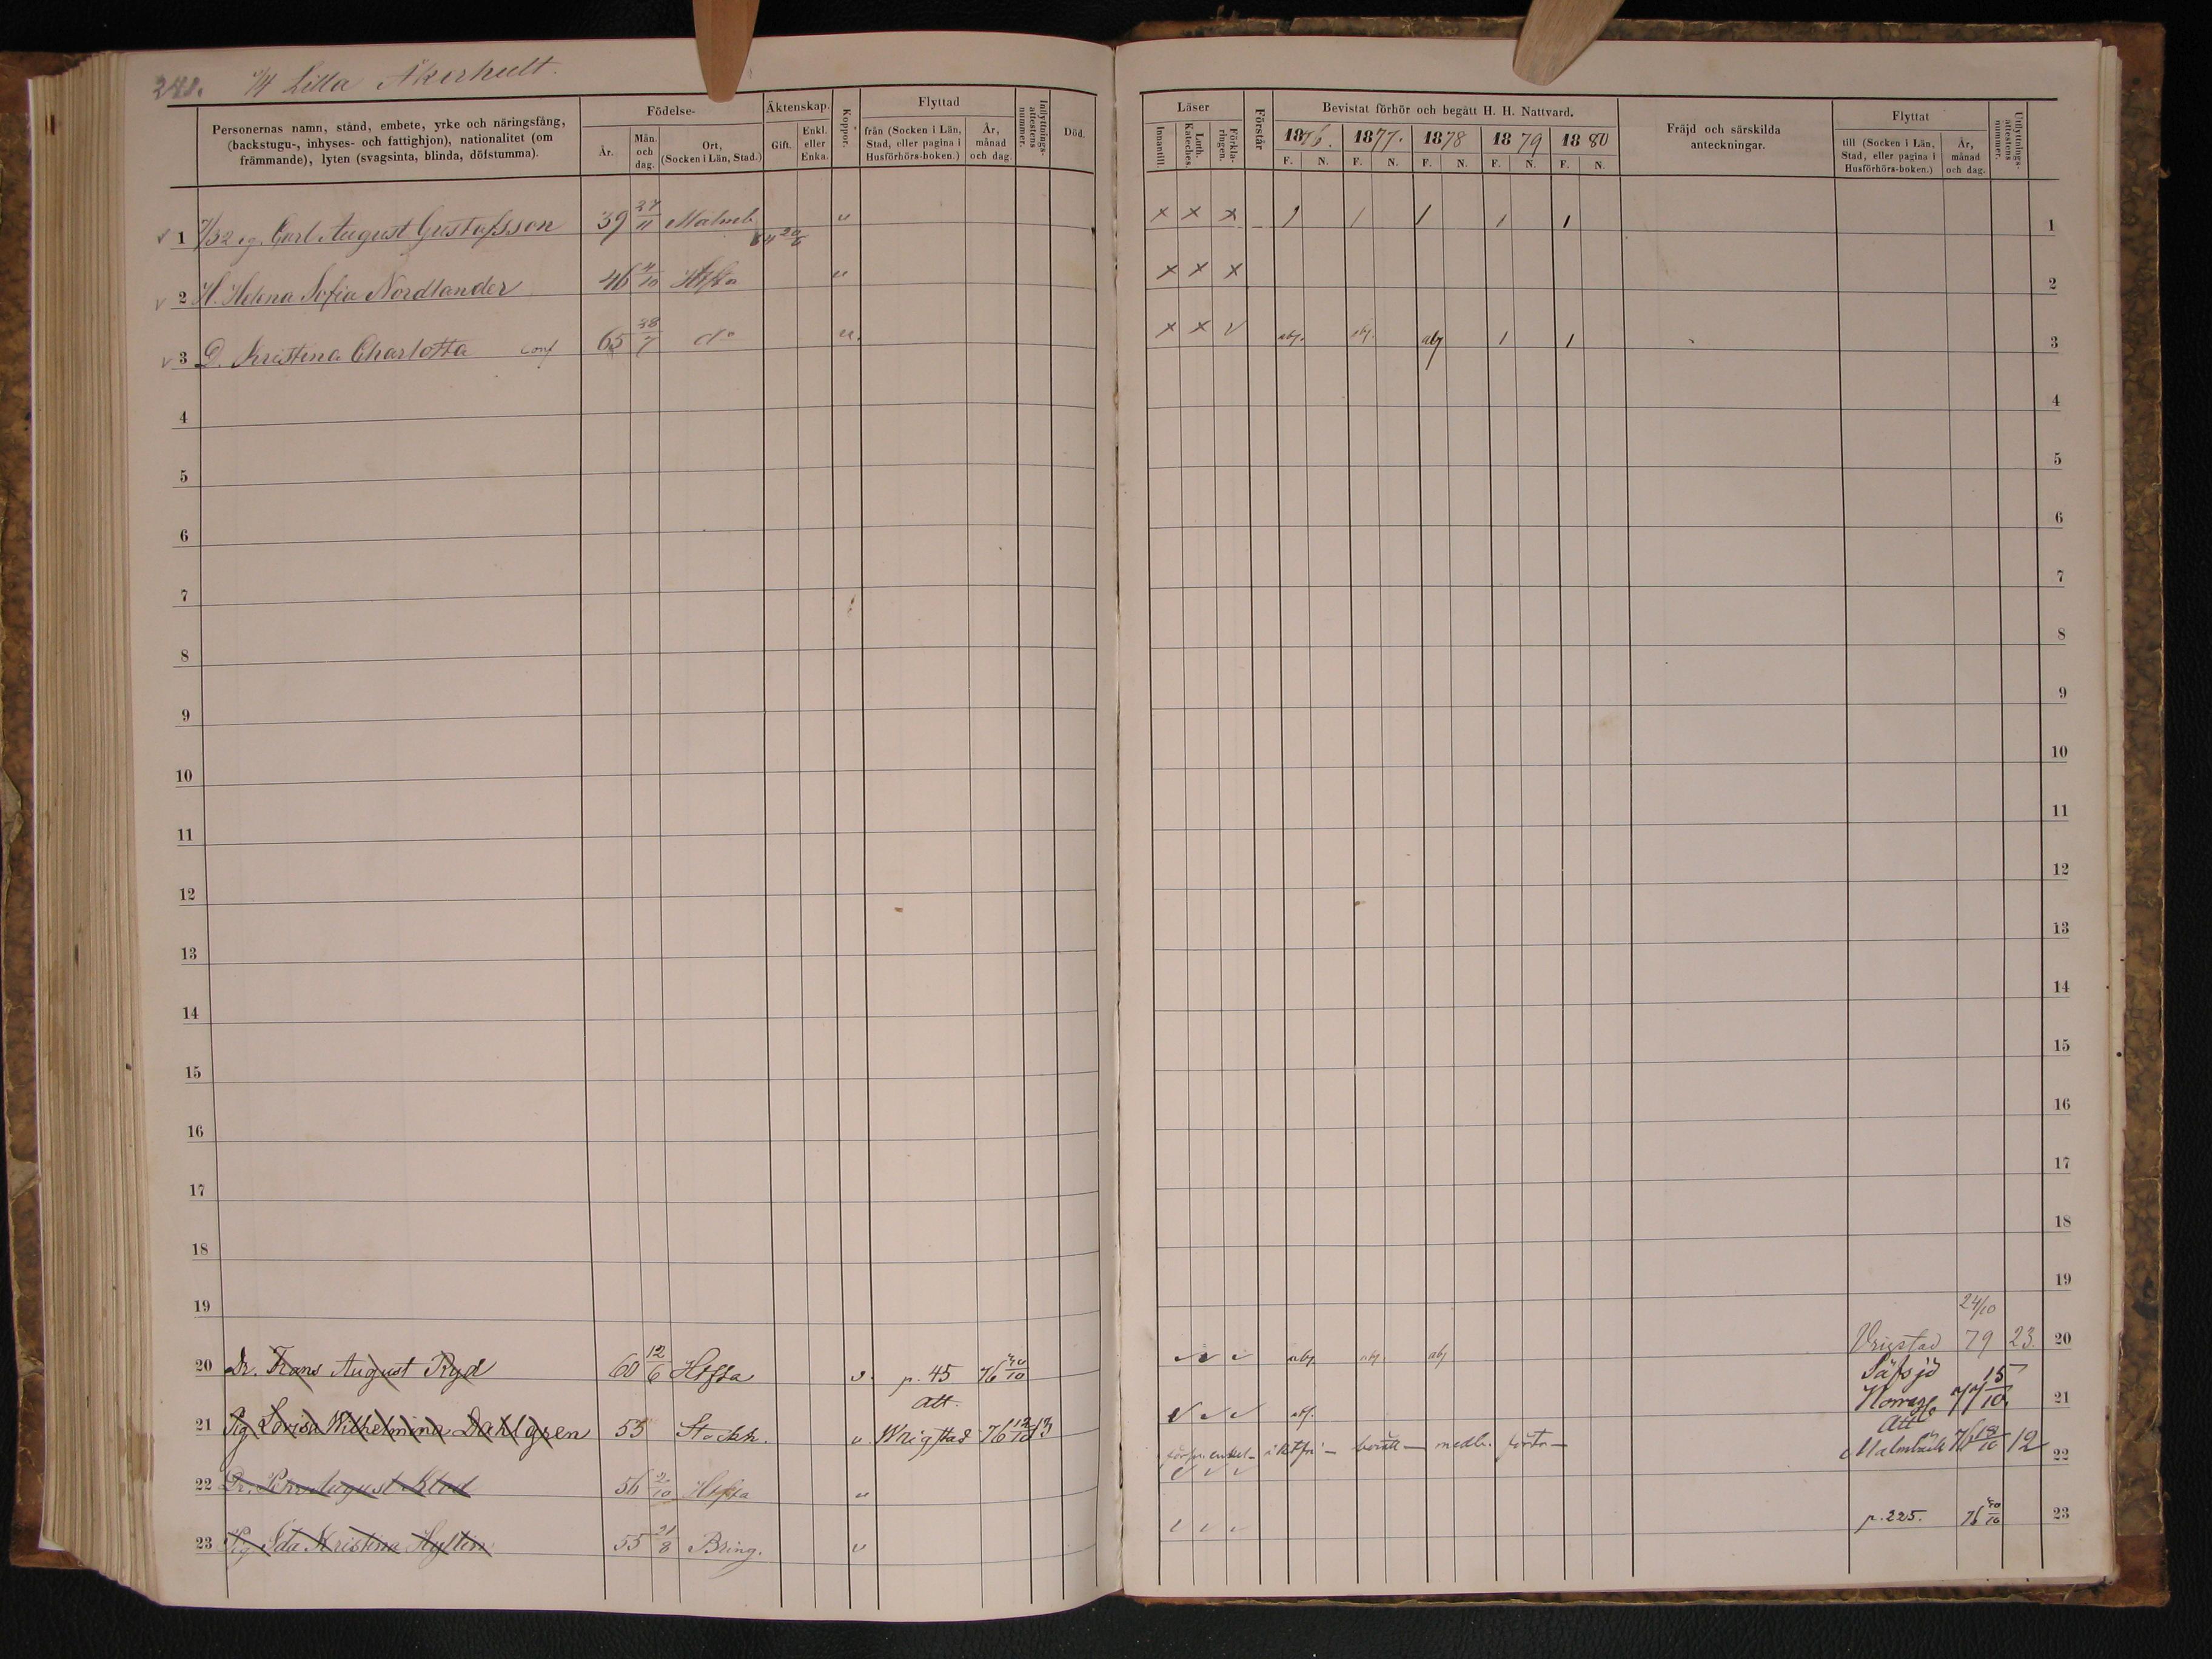 248. 1/4 Lilla Åkerhult.
Personernas namn, stånd, embete, yrke och näringsfång, (backstugu-, inhyses- och fattighjon), nationalitet (om främmande), lyten (svagsinta, blinda, döfstumma).
Födelse-
År. Mån. och dag. Ort, (Socken i Län, Stad.)
Äktenskap.
Gift. Enkl. eller Enka.
Koppor.
Flyttad
från (Socken i Län, Stad, eller pagina i Husförhörs-boken.) År, månad och dag.
Inflyttnings-attestens nummer.
Död.
Läser
Innantill. Luth. Kateches. Förkla-ringen.
Förstår
Bevistat förhör och begått H. H. Nattvard.
1876. 1877. 1878 1879 1880
F. N. F. N. F. N. F. N. F. N.
Fräjd och särskilda anteckningar.
Flyttat
till (Socken i Län, Stad, eller pagina i Husförhörs-boken.) År, månad och dag.
Utflyttnings-attestens nummer.
1 7/32 eg. Carl August Gustafsson 39 27/11 Malmb. 64 20/6 v × × × 1 1 1 1 1 1
2 H. Helena Sofia Nordlander 46 4/10 Hffa v × × × 2
3 D. Kristina Charlotta conf 65 28/7 do v. × × v abf. abf. abf 1 1 3
4 4
5 5
6 6
7 7
8 8
9 9
10 10
11 11
12 12
13 13
14 14
15 15
16 16
17 17
18 18
19 19
24/10
20 Dr. Frans August Ryd 60 12/6 Hffa v. p. 45. 76 20/10 v v v abf. abf. abf Vrigstad 79 23. 20
Säfsjö 15
21 Pig. Lovisa Wilhelmina Dahlgren 55 Stockh. v. att. Wrigstad 76 12/10 13 v v v abf. 77 /10. 21
att
Malmbäck 76 18/10 12
22 Dr. August 56 2/10 Hffa v v v v 22
23 Pig Ida Kristina Hyltin 55 21/8 Bring. v v v v p. 225. 76 20/10 23